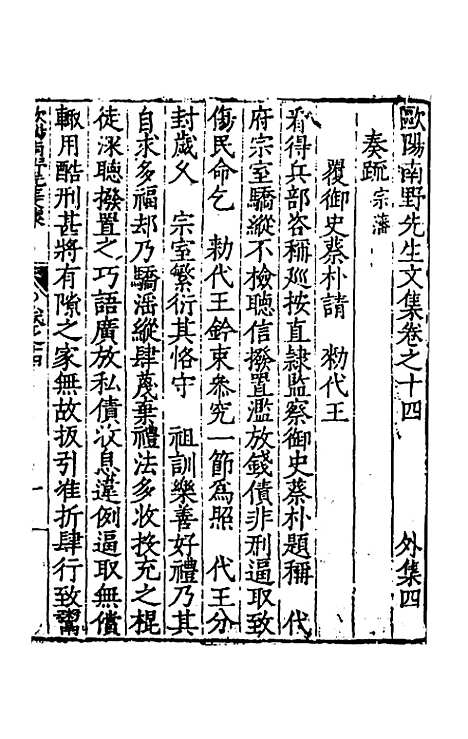 歐陽南野先生文集卷之十四 外集四
奏疏 宗藩
覆御史蔡朴請 勑代王
看得兵部咨稱廵按直隸監察御史蔡朴題稱 代
府宗室驕縱不檢聽信撥置濫放錢債非刑逼取致
傷民命乞 勑代王鈐束叅究一節爲照 代王分
封歲乆 宗室繁衍其恪守 祖訓樂善好禮乃其
自求多福却乃驕滛縱肆蔑棄禮法多收投充之棍
徒深聽撥置之巧語廣放私債收息違例逼取無償
輙用酷刑甚將有隙之家無故扳引准折肆行致鬻